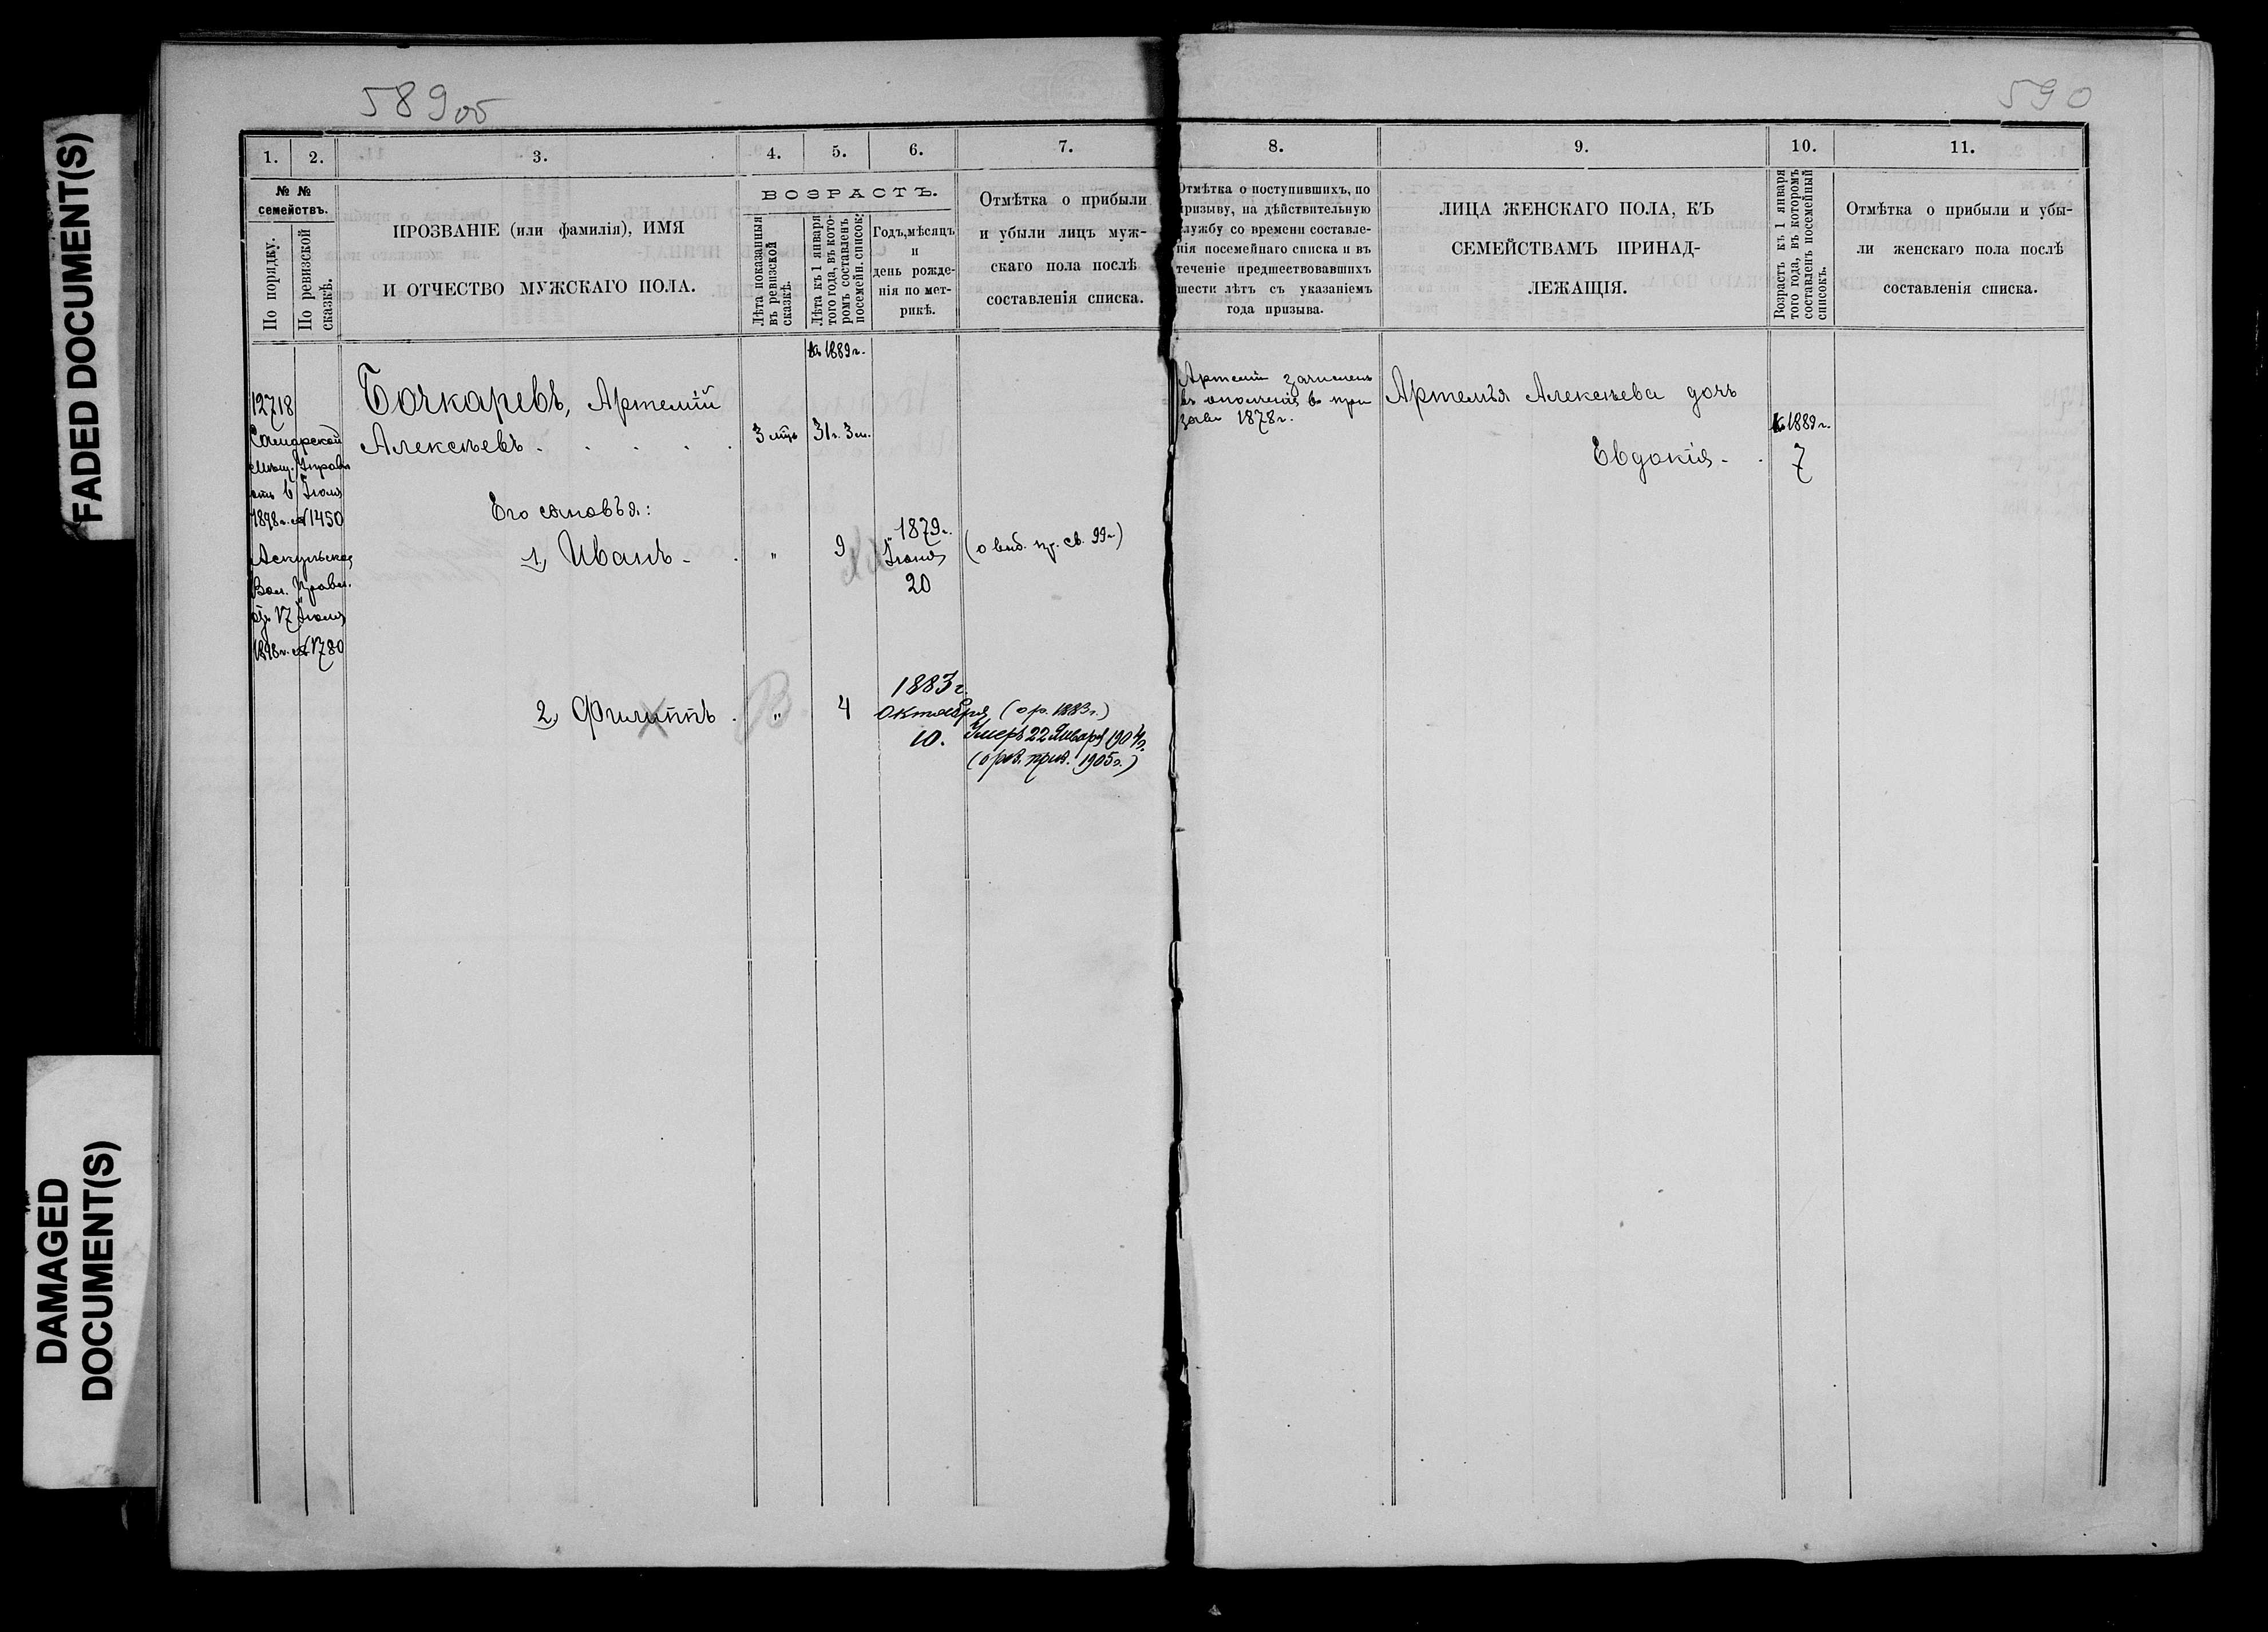 FADED DOCUMENT(S)
DAMAGED
DOCUMENT(S)
589об
590
1.
2.
3.
4.
5.
6.
7.
8.
9.
10.
11.
№ №
семействъ.
По порядку.
По ревизской
сказкѣ.
ПРОЗВАНІЕ (или фамилія), ИМЯ
И ОТЧЕСТВО МУЖСКАГО ПОЛА.
ВОЗРАСТЪ.
Лѣта показанныя
въ ревизской
сказкѣ.
Лѣта къ 1 января
того года, въ кото-
ромъ составленъ
посемейн. списокъ.
Годъ, мѣсяцъ
и
день рожде-
нія по мет-
рикѣ.
Отмѣтка о прибыли
и убыли лицъ муж-
скаго пола послѣ
составленія списка.
Отмѣтка о поступившихъ, по
призыву, на дѣйствительную
службу со времени составле-
нія посемейнаго списка и въ
теченіе предшествовавшихъ
шести лѣтъ съ указаніемъ
года призыва.
ЛИЦА ЖЕНСКАГО ПОЛА, КЪ
СЕМЕЙСТВАМЪ ПРИНАД-
ЛЕЖАЩІЯ.
Возрастъ къ 1 января
того года, въ которомъ
составленъ посемейный
списокъ.
Отмѣтка о прибыли и убы-
ли женскаго пола послѣ
составленія списка.
12718
Самарской
Мѣщ. Управы
отъ 6 Іюля
1898 г. № 1450
Аскульское
Вол. Правл.
отъ 17 Іюля
1898 г. № 1780
къ 1889 г.
Бочкаревъ, Артемій
Алексѣевъ . . . . .
3 мѣс
31 г. 3 м.
Его сыновья:
1, Иванъ - .
"
9
1879 г.
Іюня
20
(о выб. пр. св. 99 г)
2, Филиппъ .
В
"
4
1883 г.
Октября
10.
(о р. 1883 г.)
Умеръ 22 Января 1904 г.
(о роз. приз. 1905 г.)
Артемій зачисленъ
въ ополченіе въ при
зывъ 1878 г.
Артемья Алексѣева дочь
Евдокія - .
къ 1889 г.
7